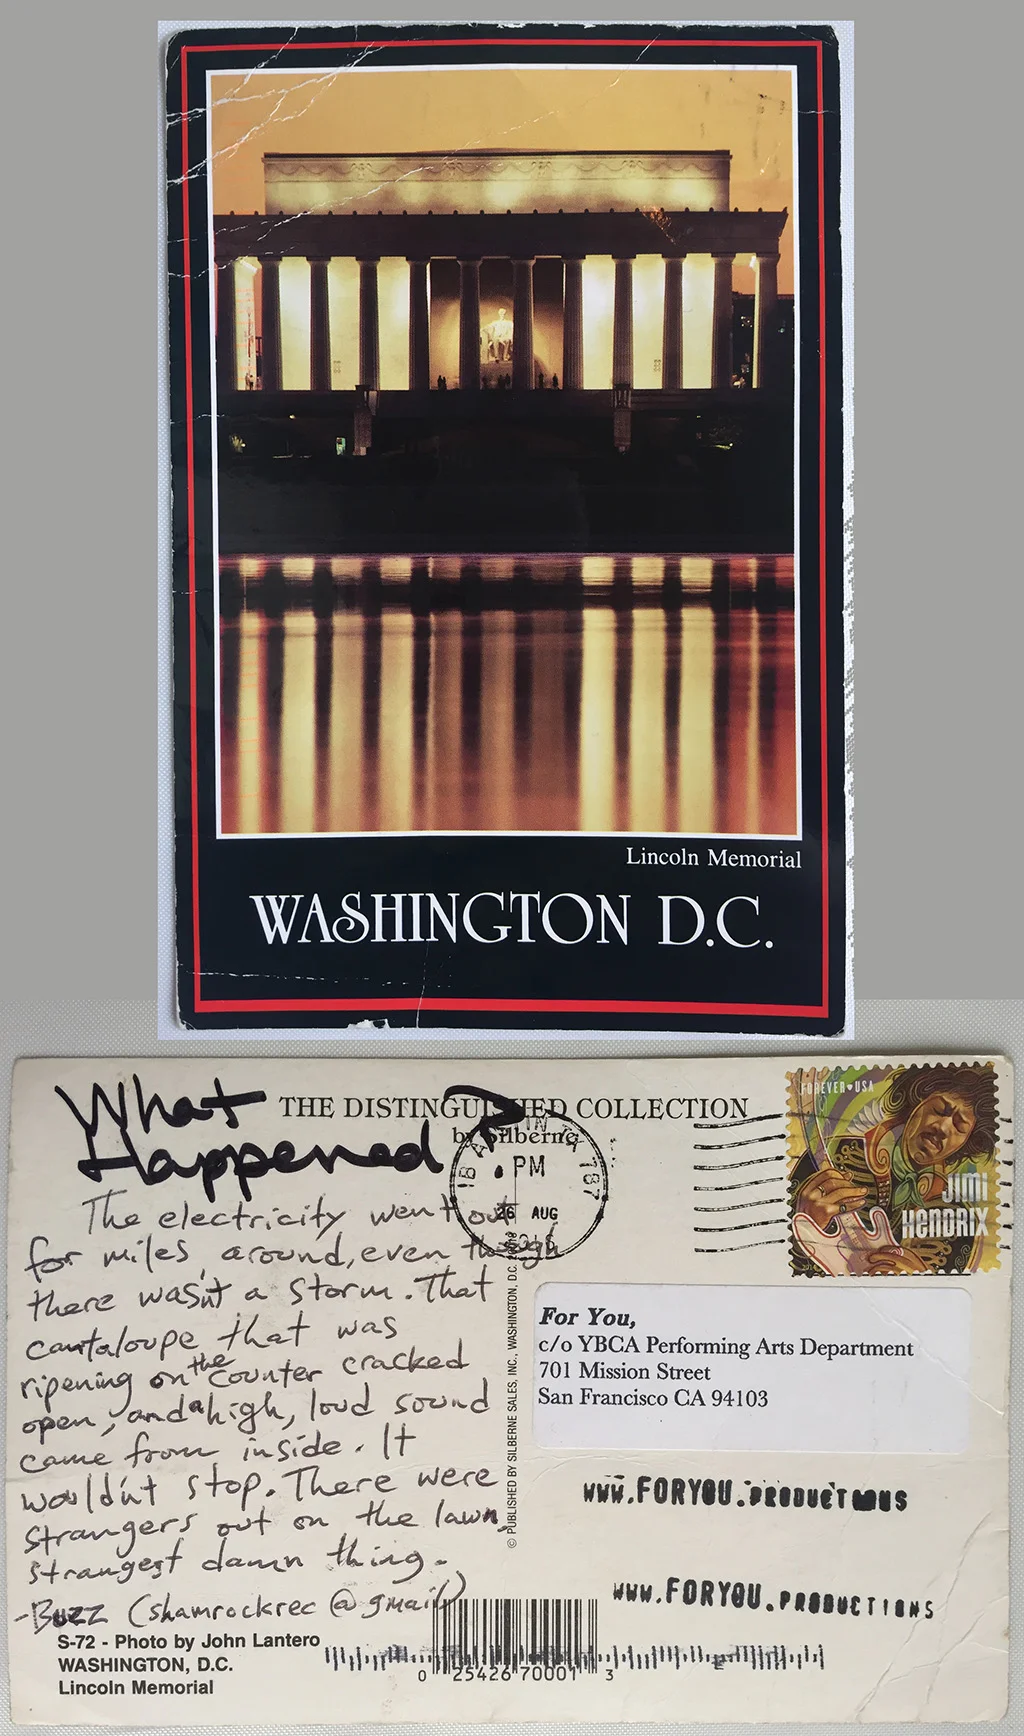 Lincoln Memorial
WASHINGTON D.C.
What
Happened?
THE DISTINGUISHED COLLECTION
by Silberne
FOREVER USA
JIMI
HENDRIX
AUSTIN TX 787
PM
26 AUG
The electricity went out
for miles around, even though
there wasn't a storm. That
cantaloupe that was
ripening on the counter cracked
open, and a high, loud sound
came from inside. It
wouldn't stop. There were
strangers out on the lawn,
strangest damn thing.
-Buzz (shamrockrec @ gmail)
© PUBLISHED BY SILBERNE SALES, INC., WASHINGTON, D.C.
For You,
c/o YBCA Performing Arts Department
701 Mission Street
San Francisco CA 94103
WWW.FORYOU.PRODUCTIONS
WWW.FORYOU.PRODUCTIONS
S-72 - Photo by John Lantero
WASHINGTON, D.C.
Lincoln Memorial
0 25426 70001 3